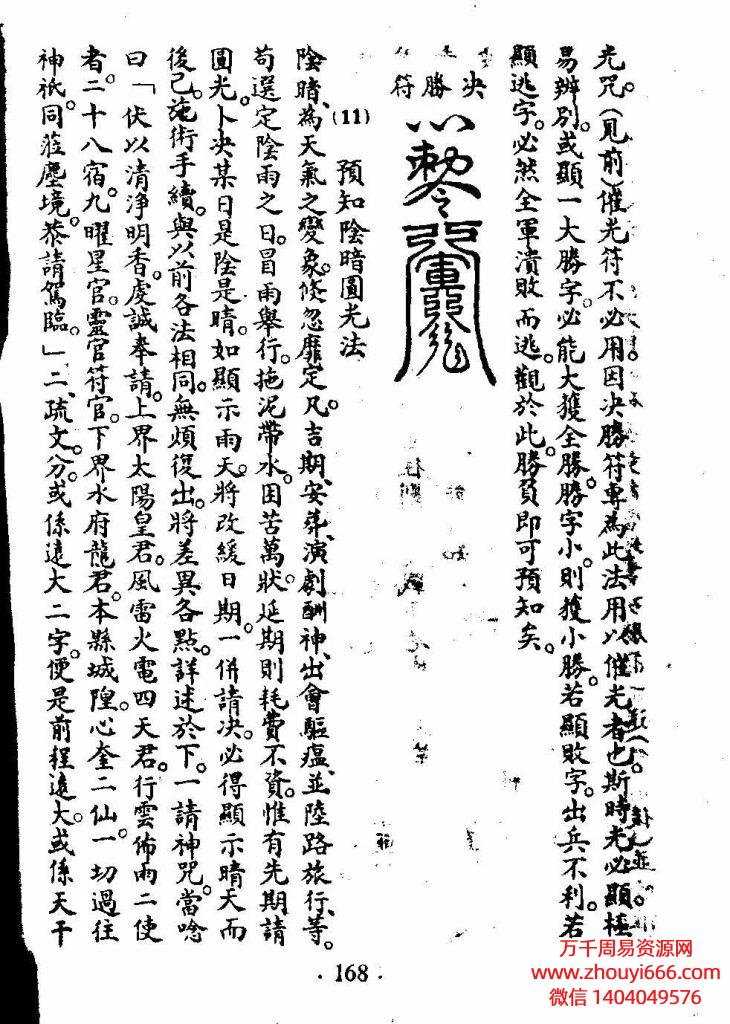 光咒。(見前)催光符不必用因決勝符專為此法用以催光者也斯時光必顯極
易辨別。或顯一大勝字。必能大獲全勝。勝字小。則獲小勝。若顯敗字。出兵不利。若
顯逃字。必然全軍潰敗而逃。觀於此。勝負即可預知矣。
決勝符
(11) 預知陰暗圓光法
陰暗、為天氣之變象。倏忽靡定。凡吉期、安葬、演劇酬神、出會驅瘟、並陸路旅行、等。
苟選定陰雨之日。冒雨舉行。拖泥帶水。困苦萬狀。延期則耗費不資。惟有先期請
圓光。卜決某日是陰是晴。如顯示雨天。將改緩日期。一併請決。必得顯示晴天而
後已。施術手續。與以前各法相同。無煩復出。將差異各點。詳述於下。一請神咒。當唸
曰「伏以清淨明香。虔誠奉請。上界太陽皇君。風雷火電四天君。行雲佈雨二使
者。二十八宿。九曜星官。靈官符官。下界水府龍君。本縣城隍。心奎二仙。一切過往
神祇。同蒞塵境。恭請駕臨。」二、疏文。分。或係遠大二字。便是前程遠大。或係天干
· 168 ·
万千周易资源网
www.zhouyi666.com
微信 1404049576